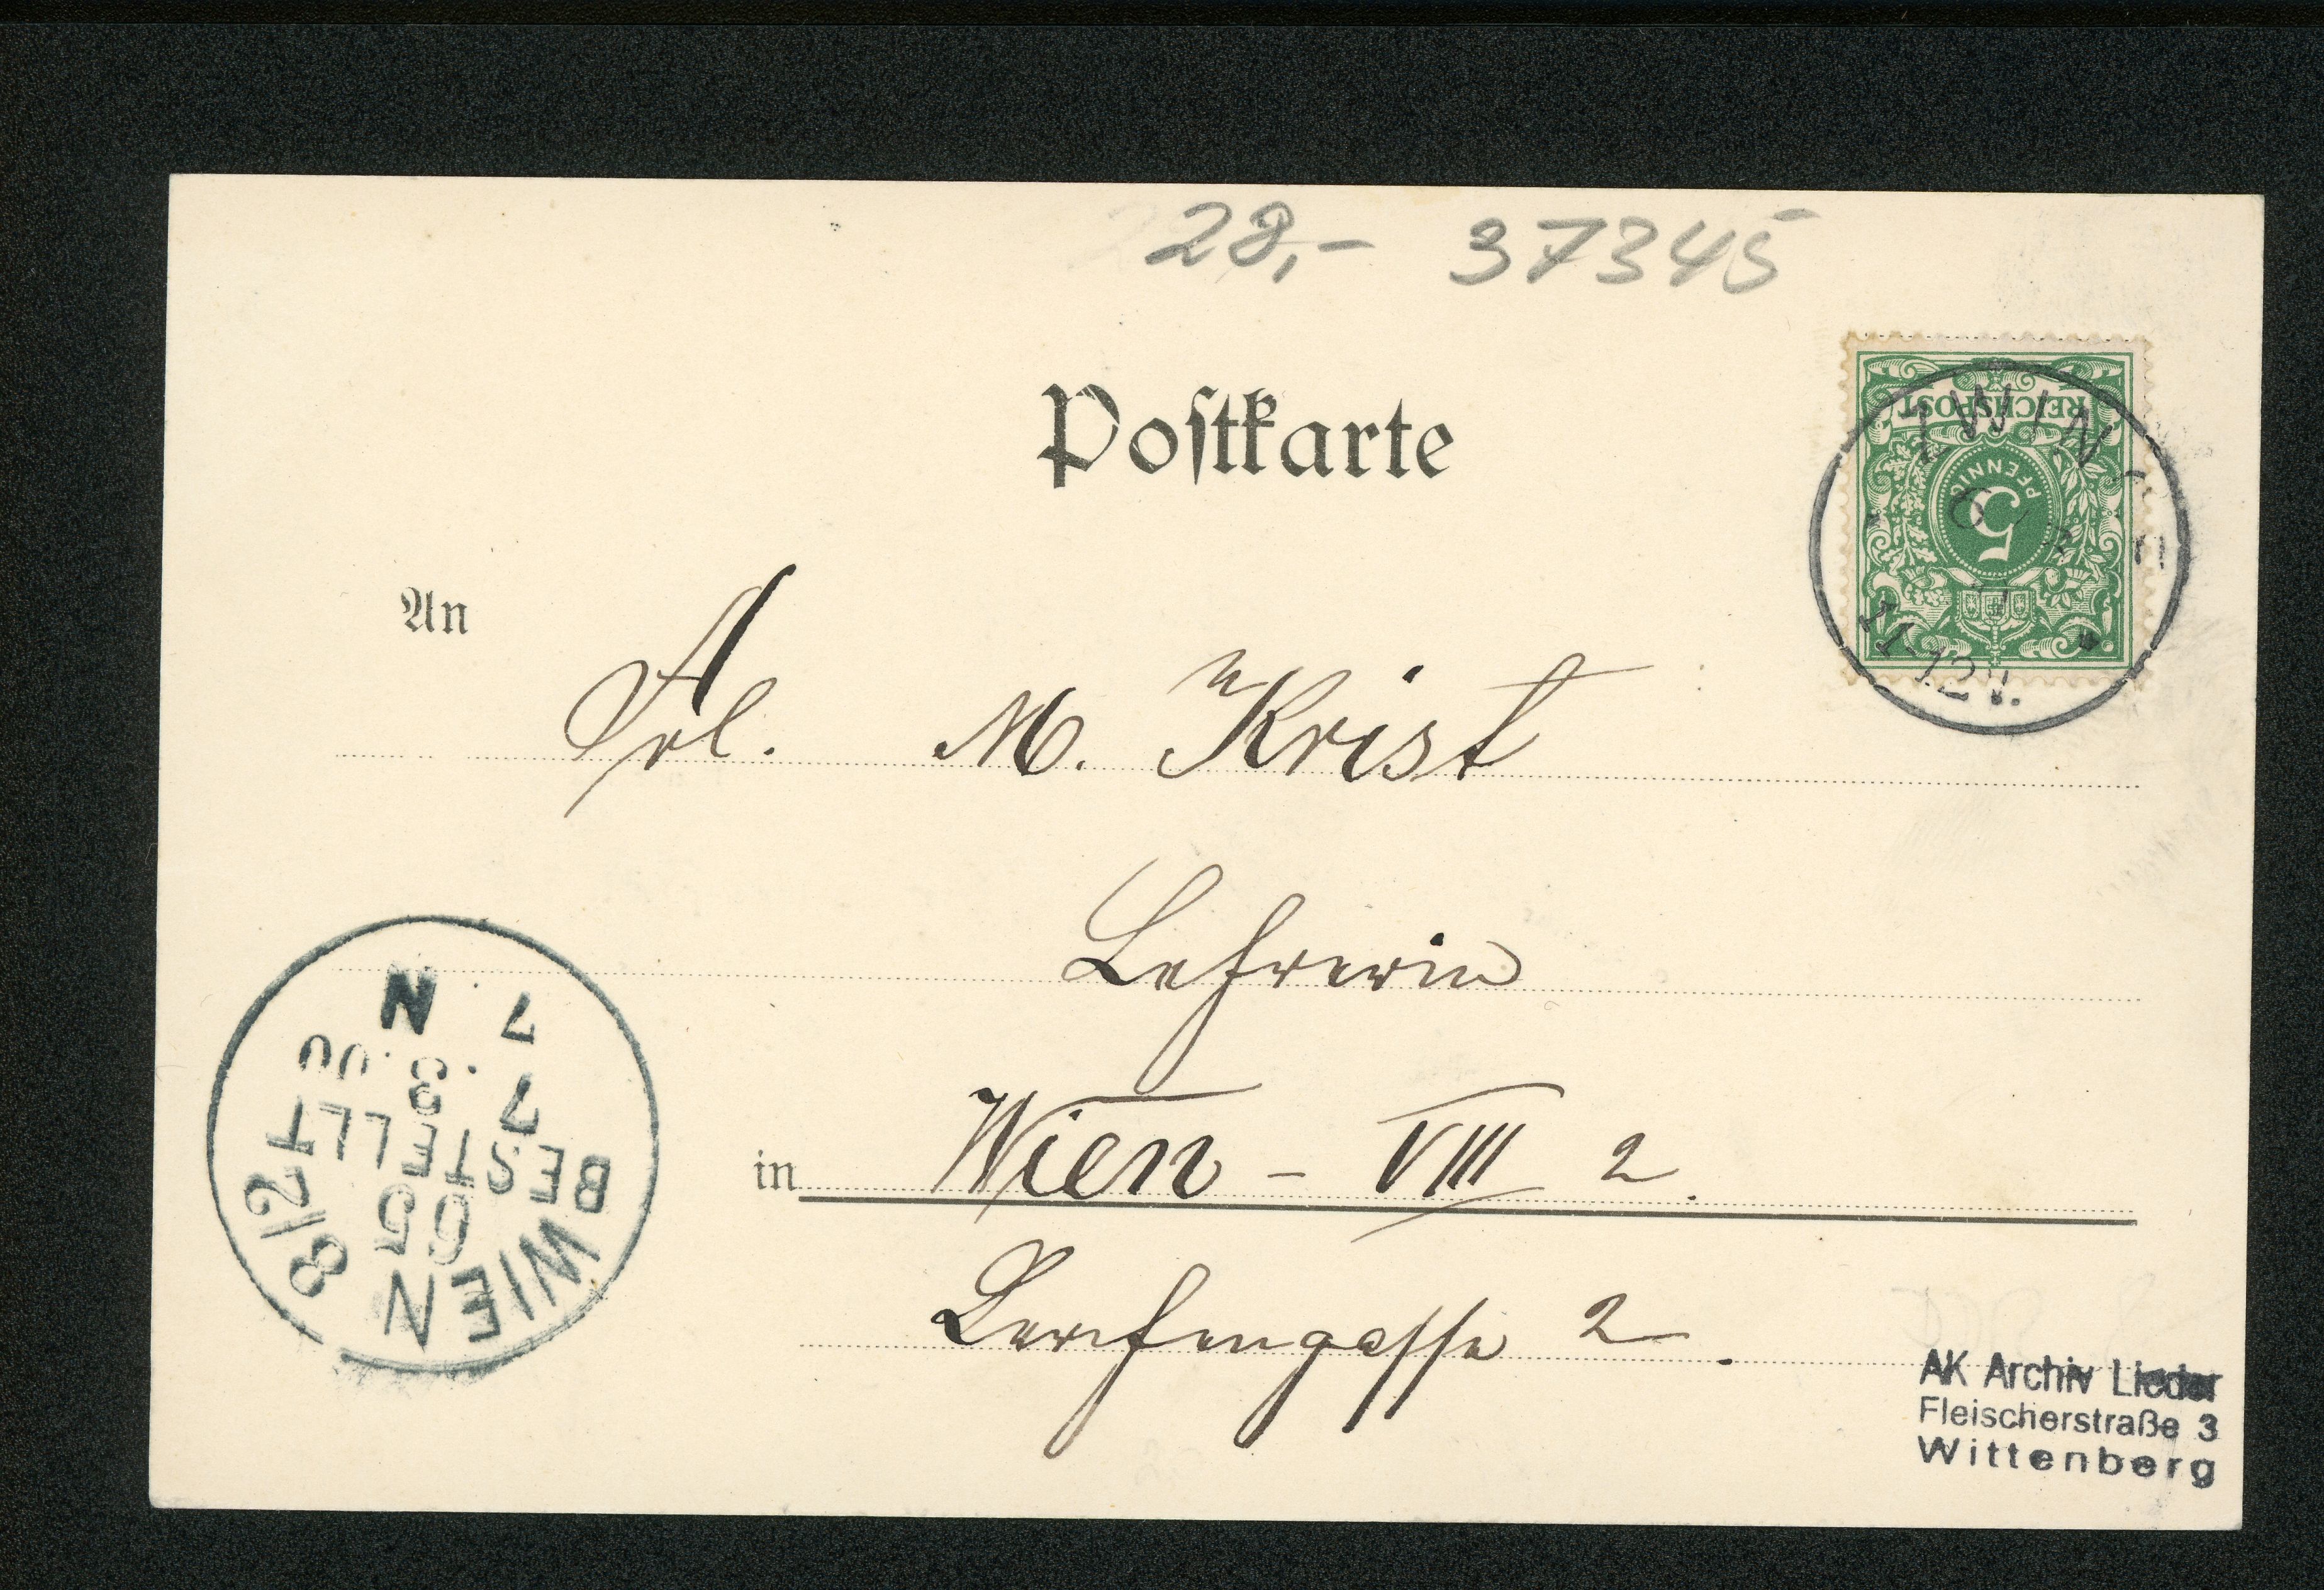 28,- 37345
Postkarte
REICHSPOST
5 PFENNIG
11-12V.
An
Frl. M. Krist
Lehrerin
in Wien - VIII 2.
Lerchengasse 2.
WIEN 8/2
BESTELLT
7. N
AK Archiv Lieder
Fleischerstraße 3
Wittenberg